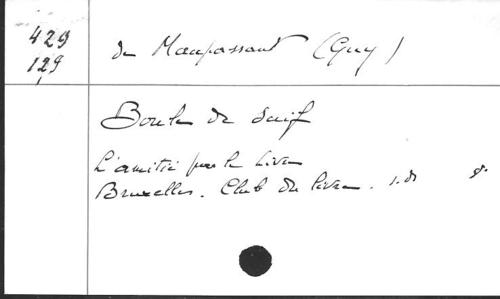 429
129
de Maupassant (Guy)
Boule de Suif
L'amitié par le Livre
Bruxelles. Club du livre. s.d. 8°